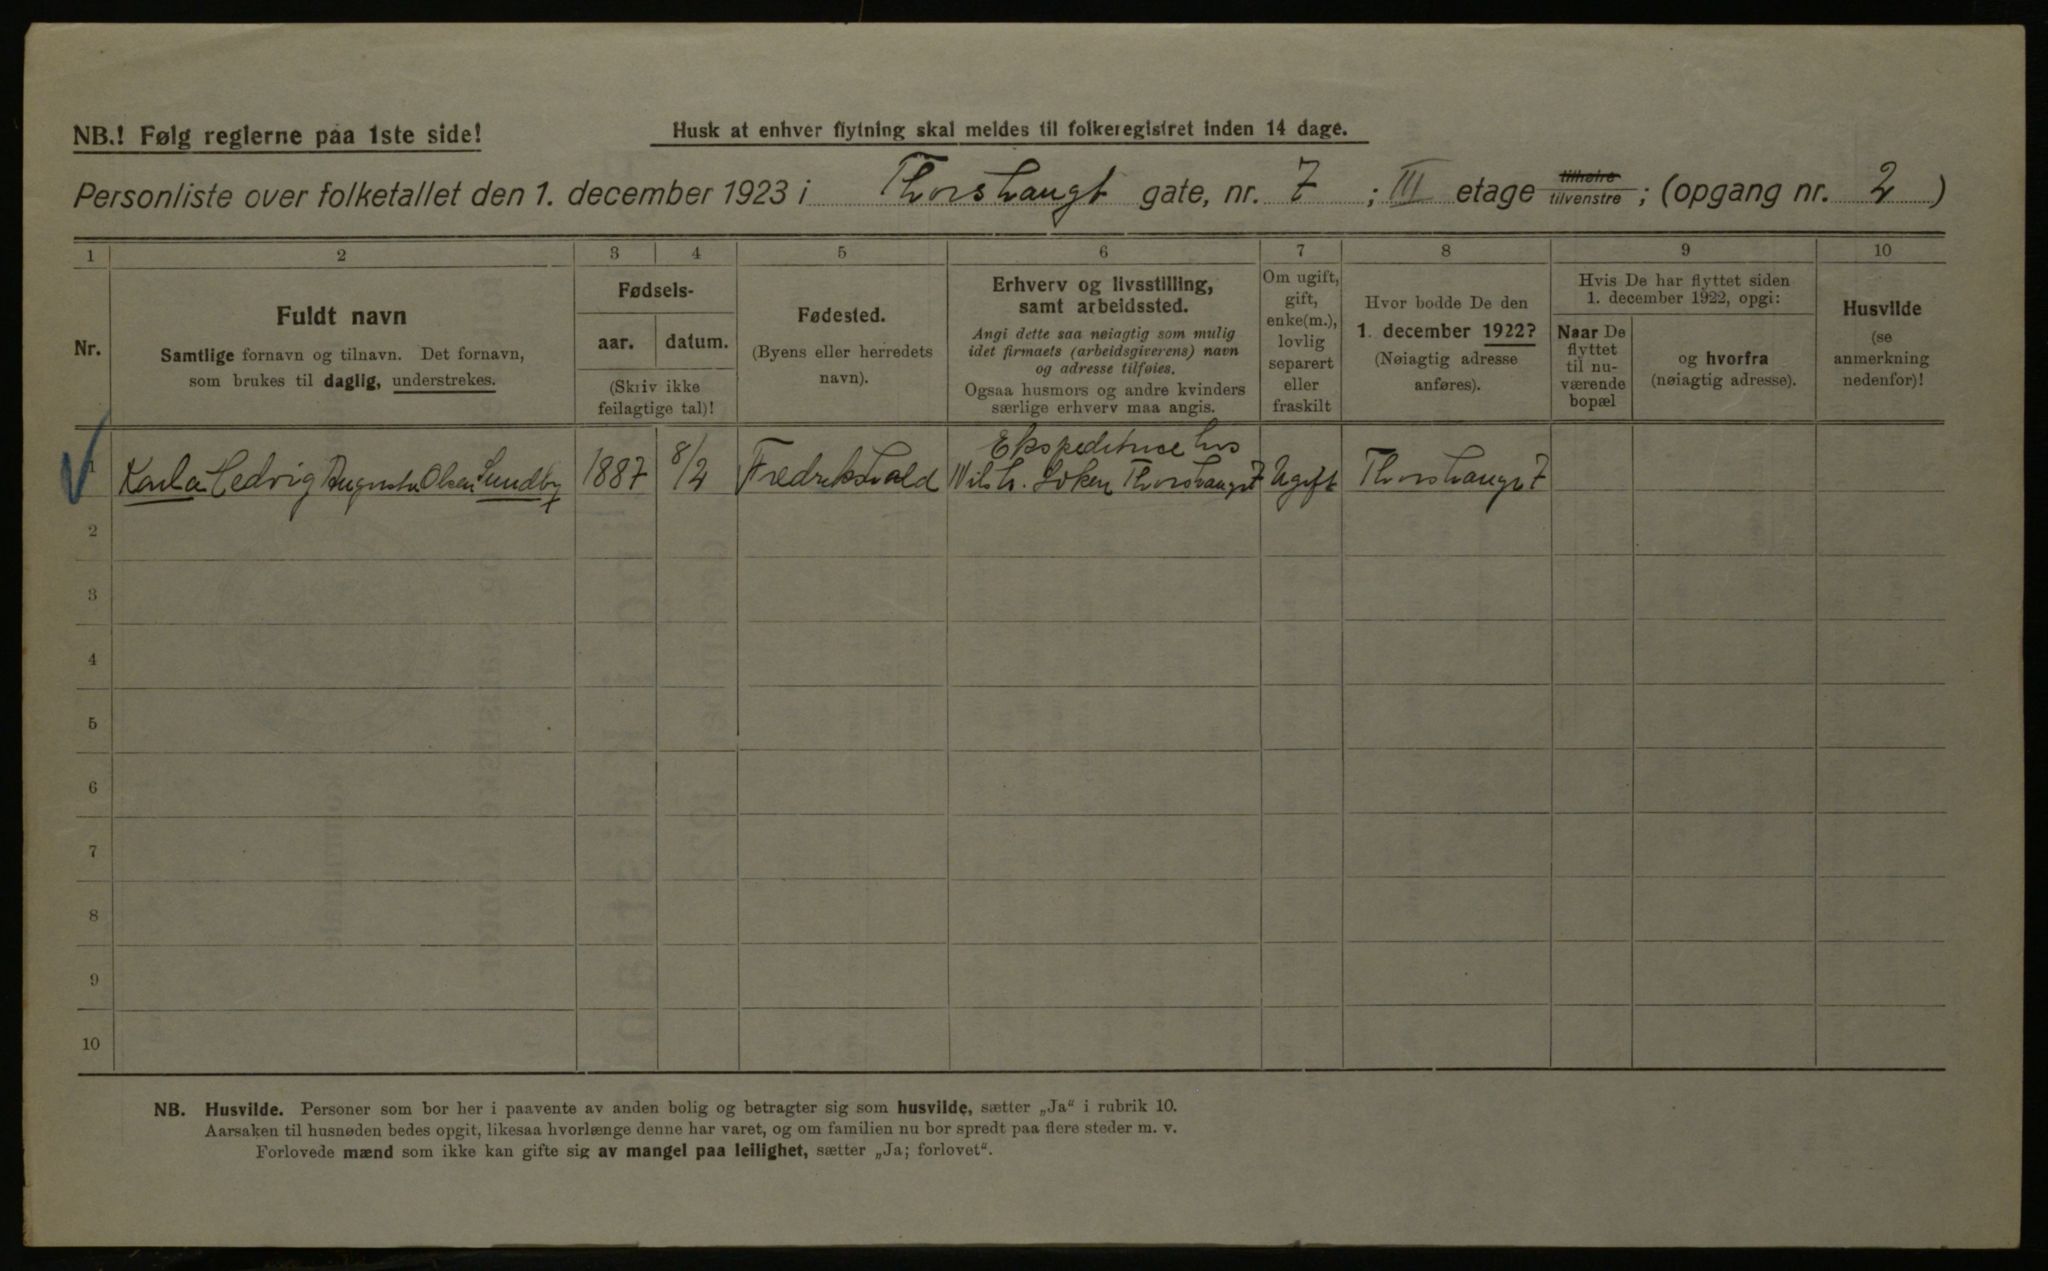 NB.! Følg reglerne paa 1ste side!
Husk at enhver flytning skal meldes til folkeregistret inden 14 dage.
Personliste over folketallet den 1. december 1923 i Thorshaugt gate, nr. 7 ; III etage tilhøire tilvenstre ; (opgang nr. 2 )
1 2 3 4 5 6 7 8 9 10
Nr.
Fuldt navn
Samtlige fornavn og tilnavn. Det fornavn,
som brukes til daglig, understrekes.
Fødsels-
aar. datum.
(Skriv ikke
feilagtige tal)!
Fødested.
(Byens eller herredets
navn).
Erhverv og livsstilling,
samt arbeidssted.
Angi dette saa nøiagtig som mulig
idet firmaets (arbeidsgiverens) navn
og adresse tilføies.
Ogsaa husmors og andre kvinders
særlige erhverv maa angis.
Om ugift,
gift,
enke(m.),
lovlig
separert
eller
fraskilt
Hvor bodde De den
1. december 1922?
(Nøiagtig adresse
anføres).
Hvis De har flyttet siden
1. december 1922, opgi:
Naar De
flyttet
til nu-
værende
bopæl
og hvorfra
(nøiagtig adresse).
Husvilde
(se
anmerkning
nedenfor)!
Ekspeditrice hos
1 Karla Hedvig Augusta Olsen Lundby 1887 8/2 Fredrikshald Thorshaugt 7 Ugift Thorshaugt 7
2
3
4
5
6
7
8
9
10
NB. Husvilde. Personer som bor her i paavente av anden bolig og betragter sig som husvilde, sætter „Ja“ i rubrik 10.
Aarsaken til husnøden bedes opgit, likesaa hvorlænge denne har varet, og om familien nu bor spredt paa flere steder m. v.
Forlovede mænd som ikke kan gifte sig av mangel paa leilighet, sætter „Ja; forlovet“.